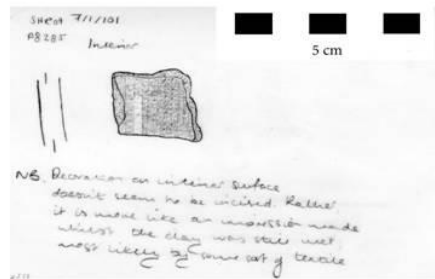 SHEET 7/1/101
P8285
Interior
5 cm
NB. Decoration on interior surface
doesn't seem to be incised. Rather
it is more like an impression made
whilst the clay was still wet,
most likely by some sort of textile